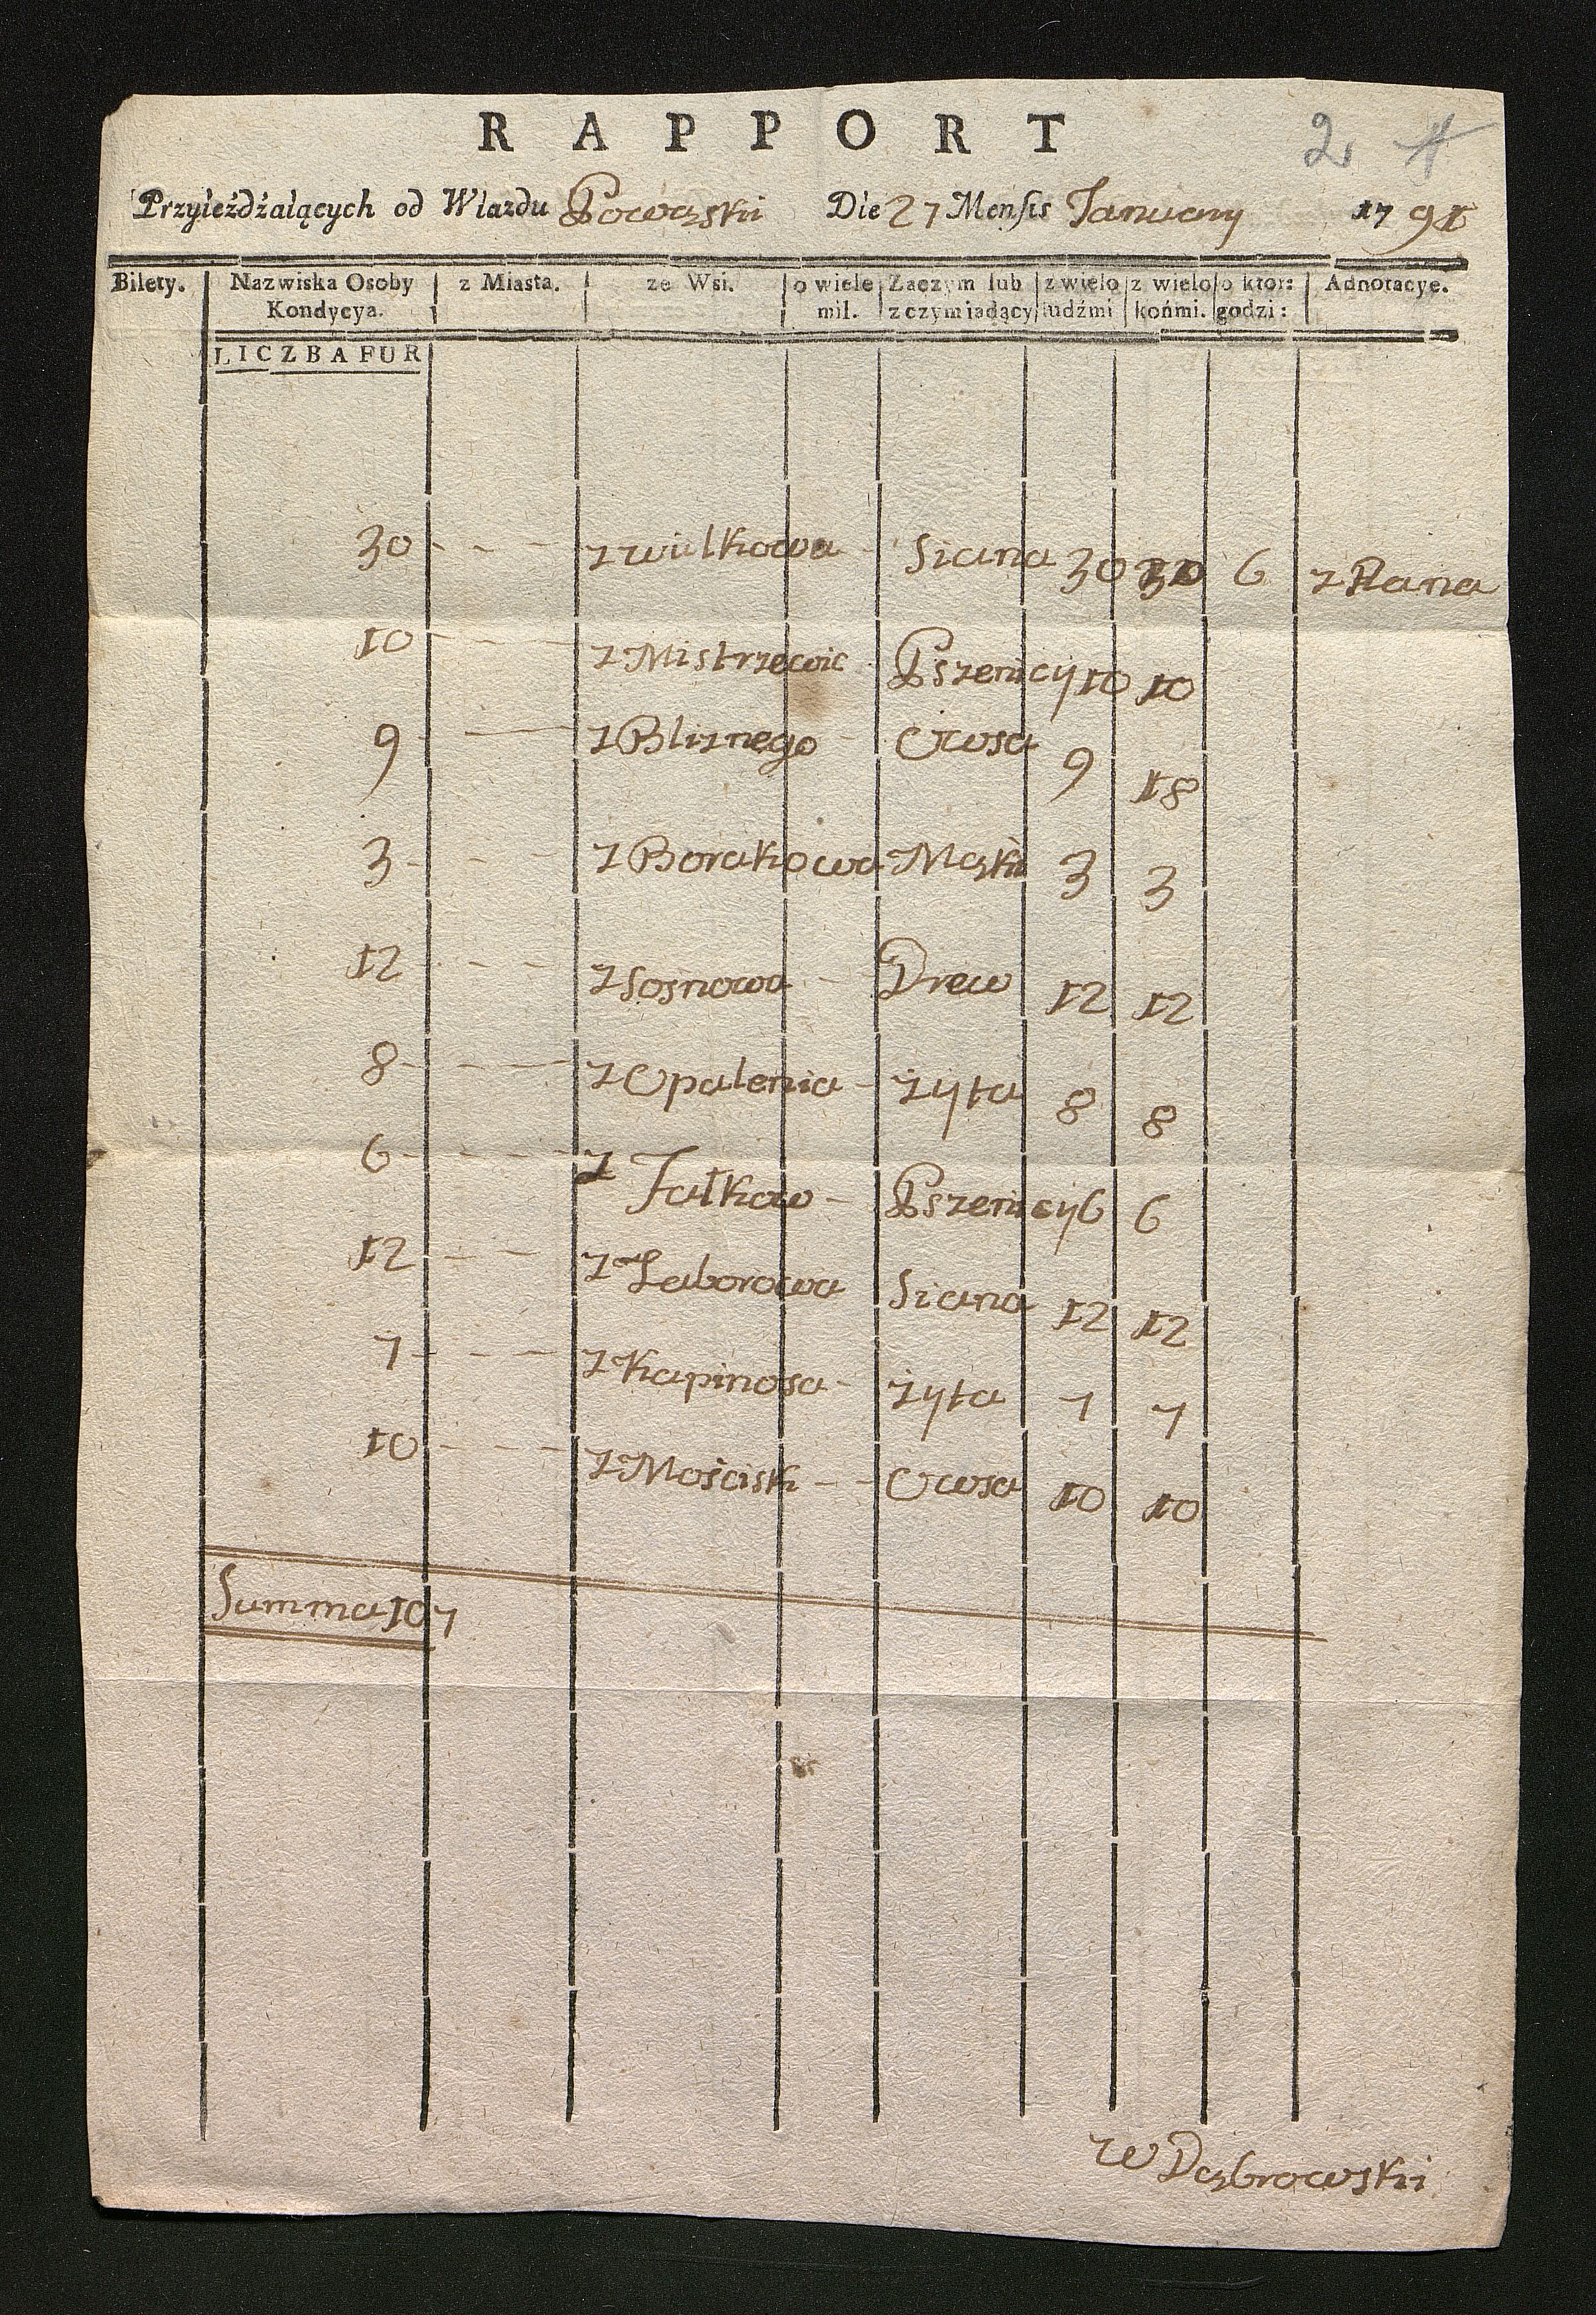 RAPPORT
2
Przyieżdżaiących od Wiazdu Powązki Die 27 Mensis January 1791
Bilety. Nazwiska Osoby Kondycya. z Miasta. ze Wsi. o wiele mil. Zaczym lub z czym iadący z wielo ludźmi z wielo końmi. o ktor: godzi: Adnotacye.
LICZBA FUR
30 - - - z wilkowa - Siana 30 30 6 z Rana
10 - - - z Mistrzewic - Pszenicy 10 10
9 - — z Bliznego - Owsa 9 18
3 - - - z Borakowa Mąki 3 3
12 - - - z Sosnowa - Drew 12 12
8 - - - z Opalenia - żyta 8 8
6 - - - z Fałkow - Pszenicy 6 6
12 - - - z Zaborowa Siana 12 12
7 - - - z Kapinosa - żyta 7 7
10 - - - z Mościsk - - Owsa 10 10
Summa 107
W Dąbrowski